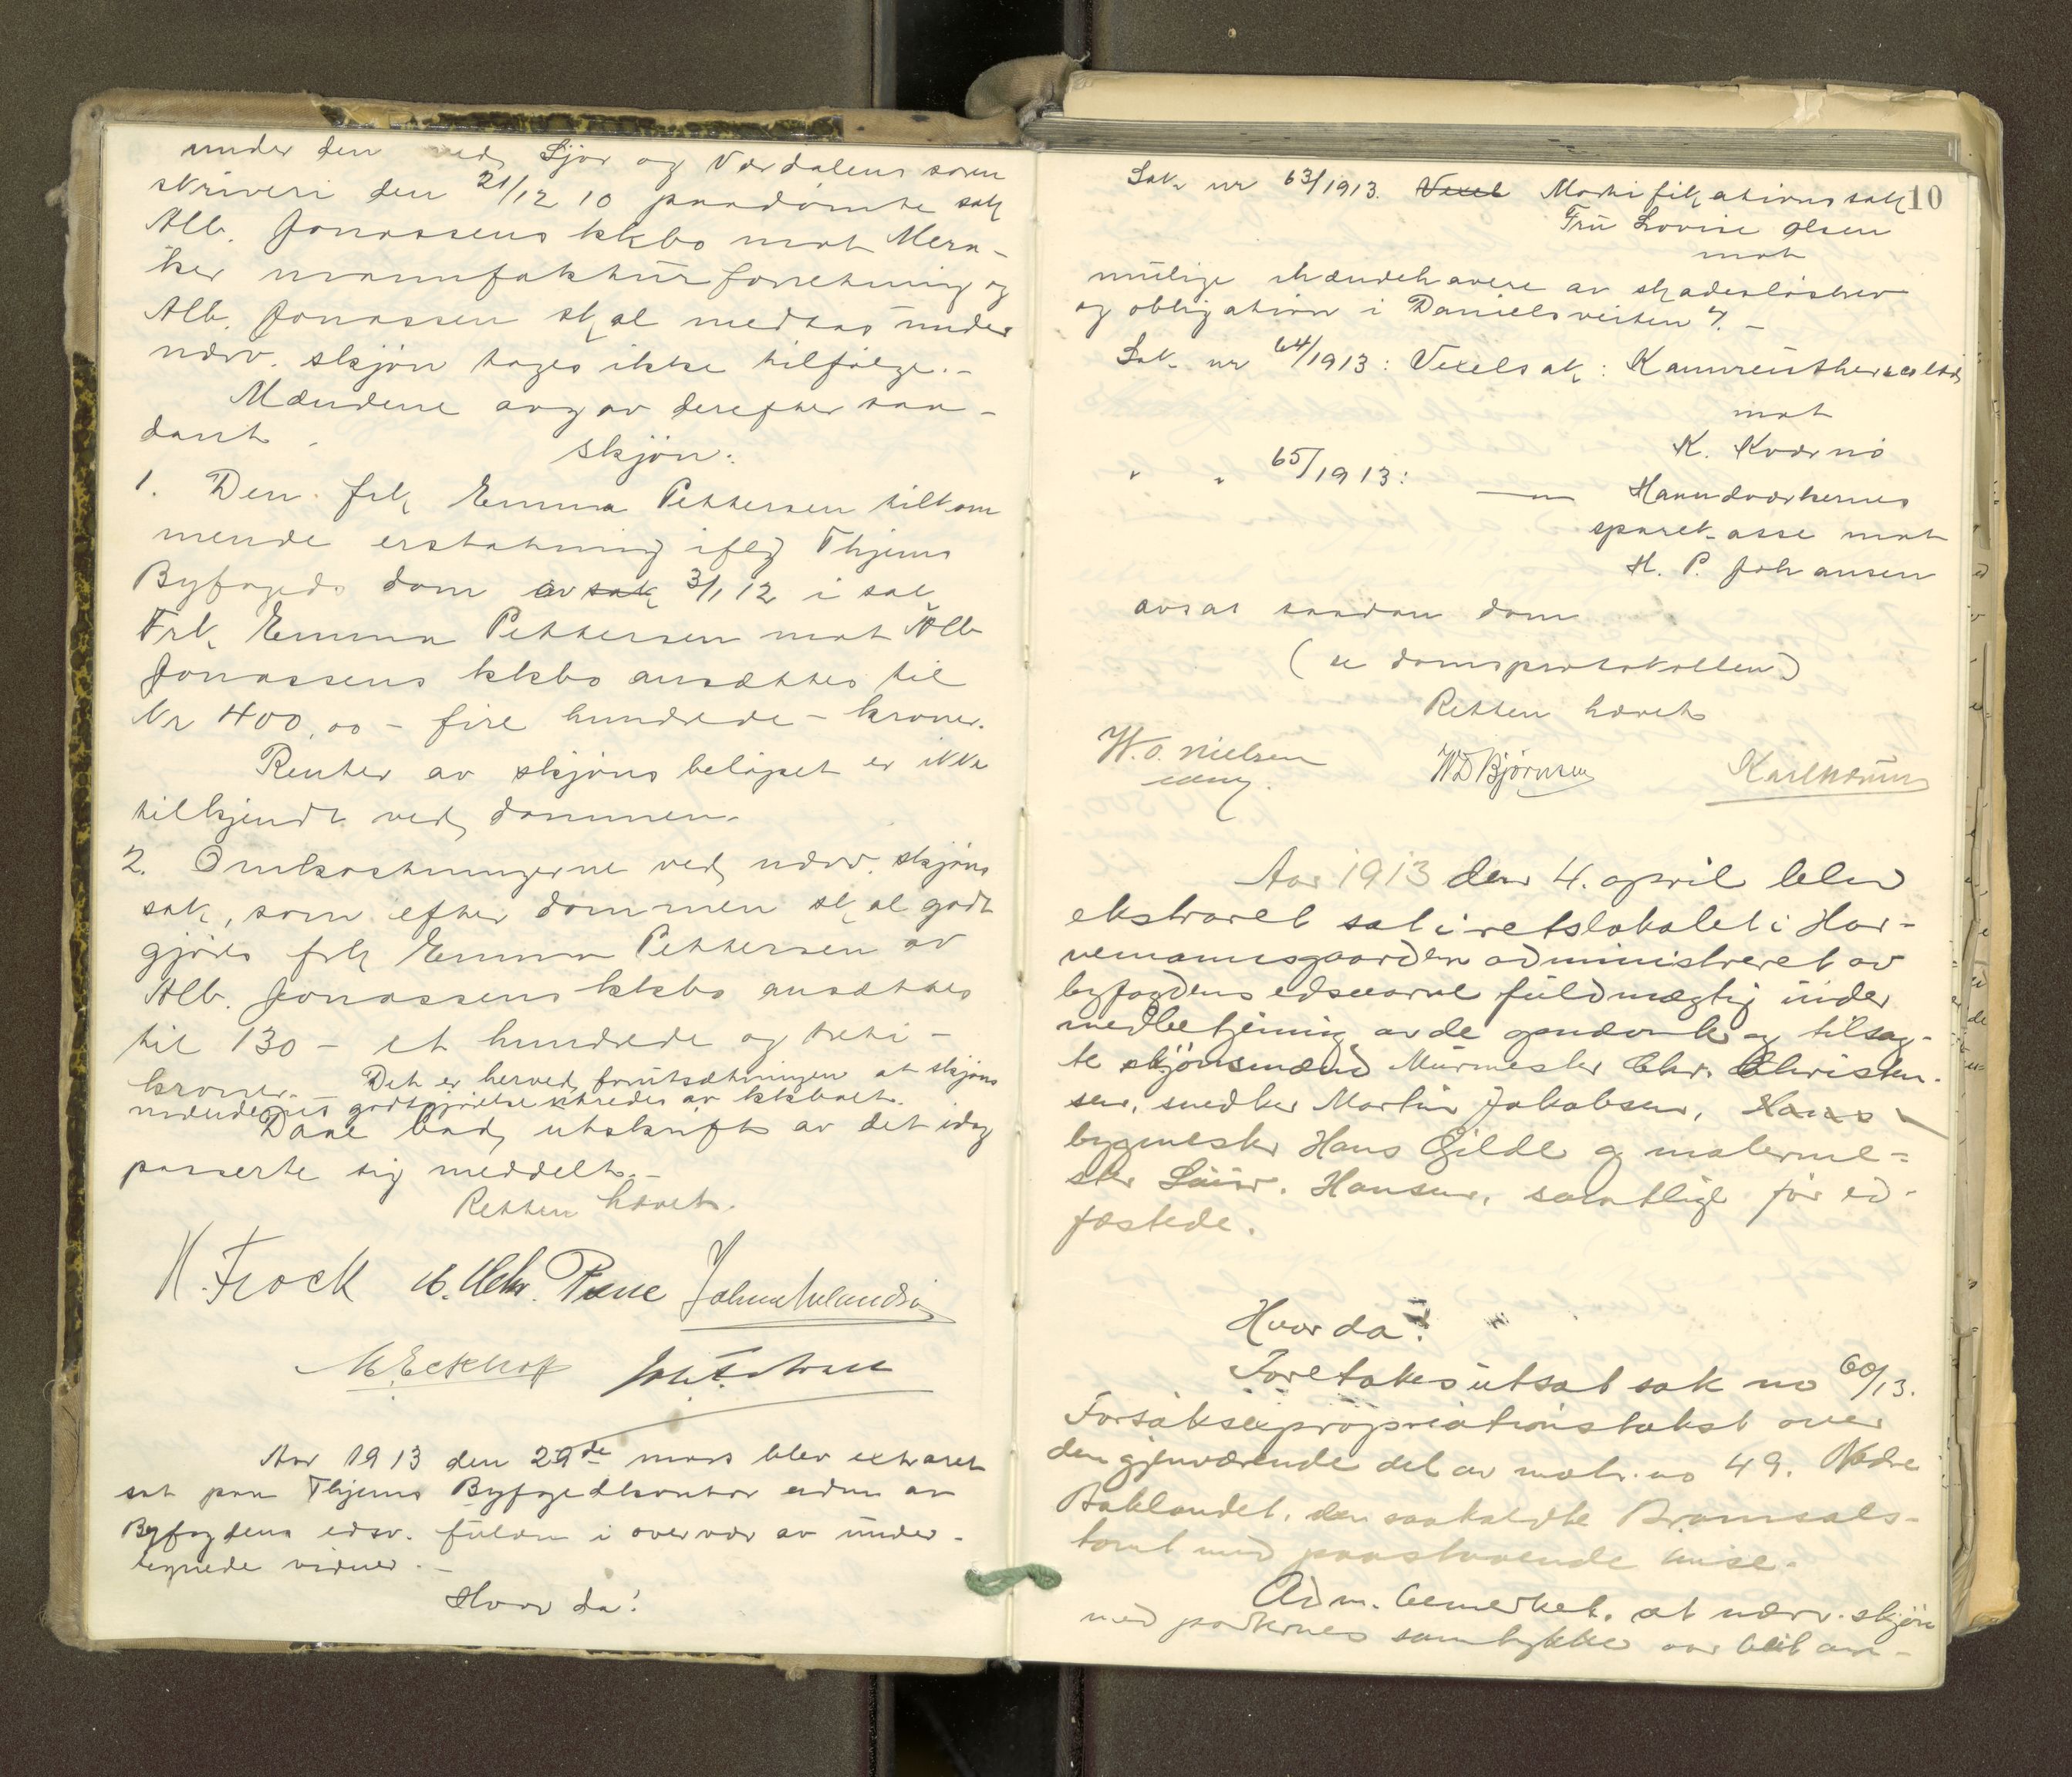 under den ved Stjør og Værdalens soren
skriveri den 21/12 10 paadømte sak
Alb. Jonassens kkbo mot Mera-
ker manufakturforretning og
Alb. Jonassen skal medtas under
nærv. skjøn tages ikke tilfølge. -
Mændene avgav derefter saa-
dant
skjøn:
1. Den frk Emma Pettersen tilkom
mende erstatning iflg Thjems
Byfogeds dom av sak 3/1 12 i sak
Frk Emma Pettersen mot Alb
Jonassens kkbo ansættes til
Kr 400,00 - fire hundrede - kroner.
Renter av skjøns beløpet er ikke
tilkjendt ved dommen.
2. Omkostningerne ved nærv. skjøns
sak, som efter dommen skal godt
gjøres frk Emma Pettersen av
Alb. Jonassens kkbo ansættes
til 130 - et hundrede og treti -
kroner. - Det er herved forutsætningen at skjøns
mændenes godtgjørelse utredes av kkboet.
Daae bad utskrift av det idag
passerte sig meddelt. -
Retten hævet.
K. Frock Chr.
M. Eckhof
Aar 1913 den 29de mars blev extraret
sat paa Thjems Byfogedkontor adm av
Byfogdens edsv. fuldm i overvær av under-
tegnede vidner. -
Hvor da!
10
Sak nr 63/1913. Vexel Mortifikationssak
Fru Lovise Olsen
mot
mulige ihændehavere av skadesløsbrev
og obligation i Danielsveiten 7. -
Sak nr 64/1913: Vexelsak:
mot
K. Kværnø
" " 65/1913: — Haandværkernes
sparekasse mot
H. P. Johansen
avsat saadan dom
(se domsprotokollen)
Retten hævet
W. O. Nielsen
edsv.
WD Bjørnsen
Karl
Aar 1913 den 4. april blev
ekstraret sat i retslokalet i Hor-
nemannsgaarden administreret av
byfogdens edsvorne fuldmægtig under
medbetjening av de opnævnte og tilsag-
te skjønsmænd Murmester Chr. Christen-
sen, snedker Martin Jakobsen, Hans
bygmester Hans Gilde og malerme-
ster Laur. Hansen, samtlige før ed-
fæstede.
Hvor da!
Foretokes utsat sak no 60/13.
Forsøksexpropriationstakst over
den gjenværende del av matr. no 49. Nedre
Baklandet, den saakaldte Bromsals-
tomt med paastaaende huse.
Adm. bemerket, at nærv. skjøn
med parternes samtykke var blit an-